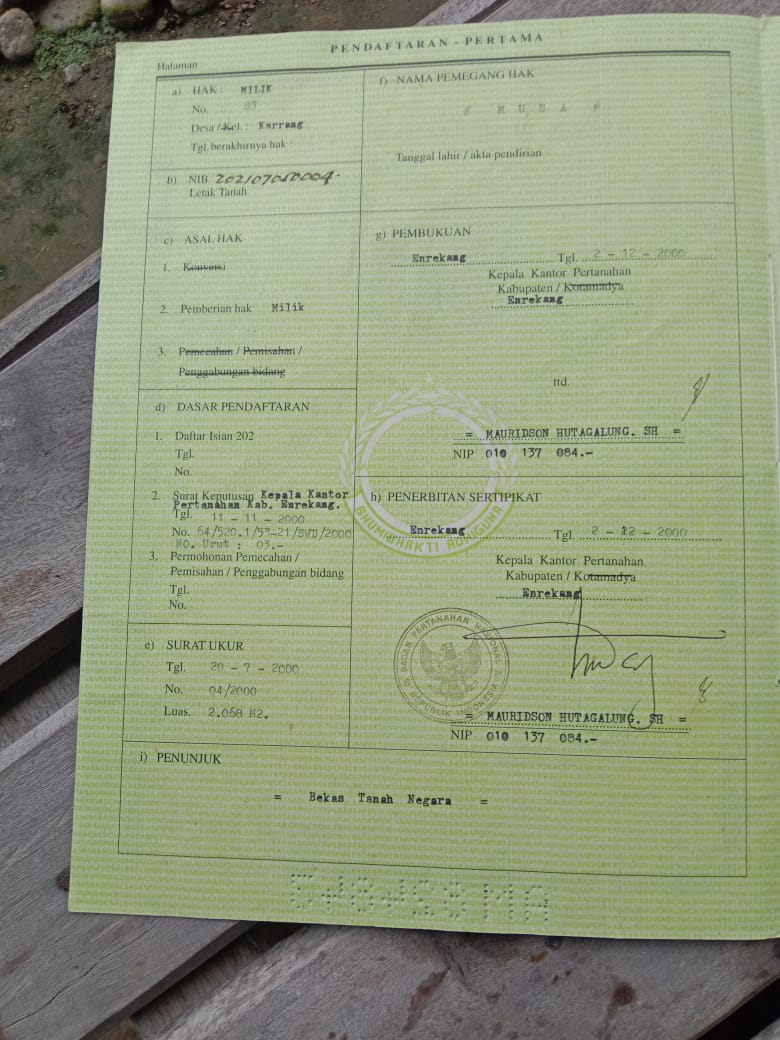 PENDAFTARAN - PERTAMA
Halaman :
a) HAK : MILIK
No. : 83
Desa / Kel. : Karrang
Tgl. berakhirnya hak :
b) NIB 202107050004.-
Letak Tanah
c) ASAL HAK
1. Konversi
2. Pemberian hak Milik
3. Pemecahan / Pemisahan /
Penggabungan bidang
d) DASAR PENDAFTARAN
1. Daftar Isian 202
Tgl.
No.
2. Surat Keputusan Kepala Kantor
Pertanahan Kab. Enrekang.
Tgl. 11 - 11 - 2000
No. 64/520.1/53-21/SWD/2000
No. Urut : 03.-
3. Permohonan Pemecahan /
Pemisahan / Penggabungan bidang
Tgl.
No.
e) SURAT UKUR
Tgl. 20 - 7 - 2000
No. 04/2000
Luas. 2.068 M2.
f) NAMA PEMEGANG HAK
# M U S A #
Tanggal lahir / akta pendirian
g) PEMBUKUAN
Enrekang Tgl. 2 - 12 - 2000
Kepala Kantor Pertanahan
Kabupaten / Kotamadya
Enrekang
ttd.
= MAURIDSON HUTAGALUNG. SH =
NIP 010 137 084.-
BHUMI BHAKTI ADIGUNA
h) PENERBITAN SERTIPIKAT
Enrekang Tgl. 2 - 12 - 2000
Kepala Kantor Pertanahan
Kabupaten / Kotamadya
Enrekang
BADAN PERTANAHAN NASIONAL
REPUBLIK INDONESIA
= MAURIDSON HUTAGALUNG. SH =
NIP 010 137 084.-
i) PENUNJUK
= Bekas Tanah Negara =